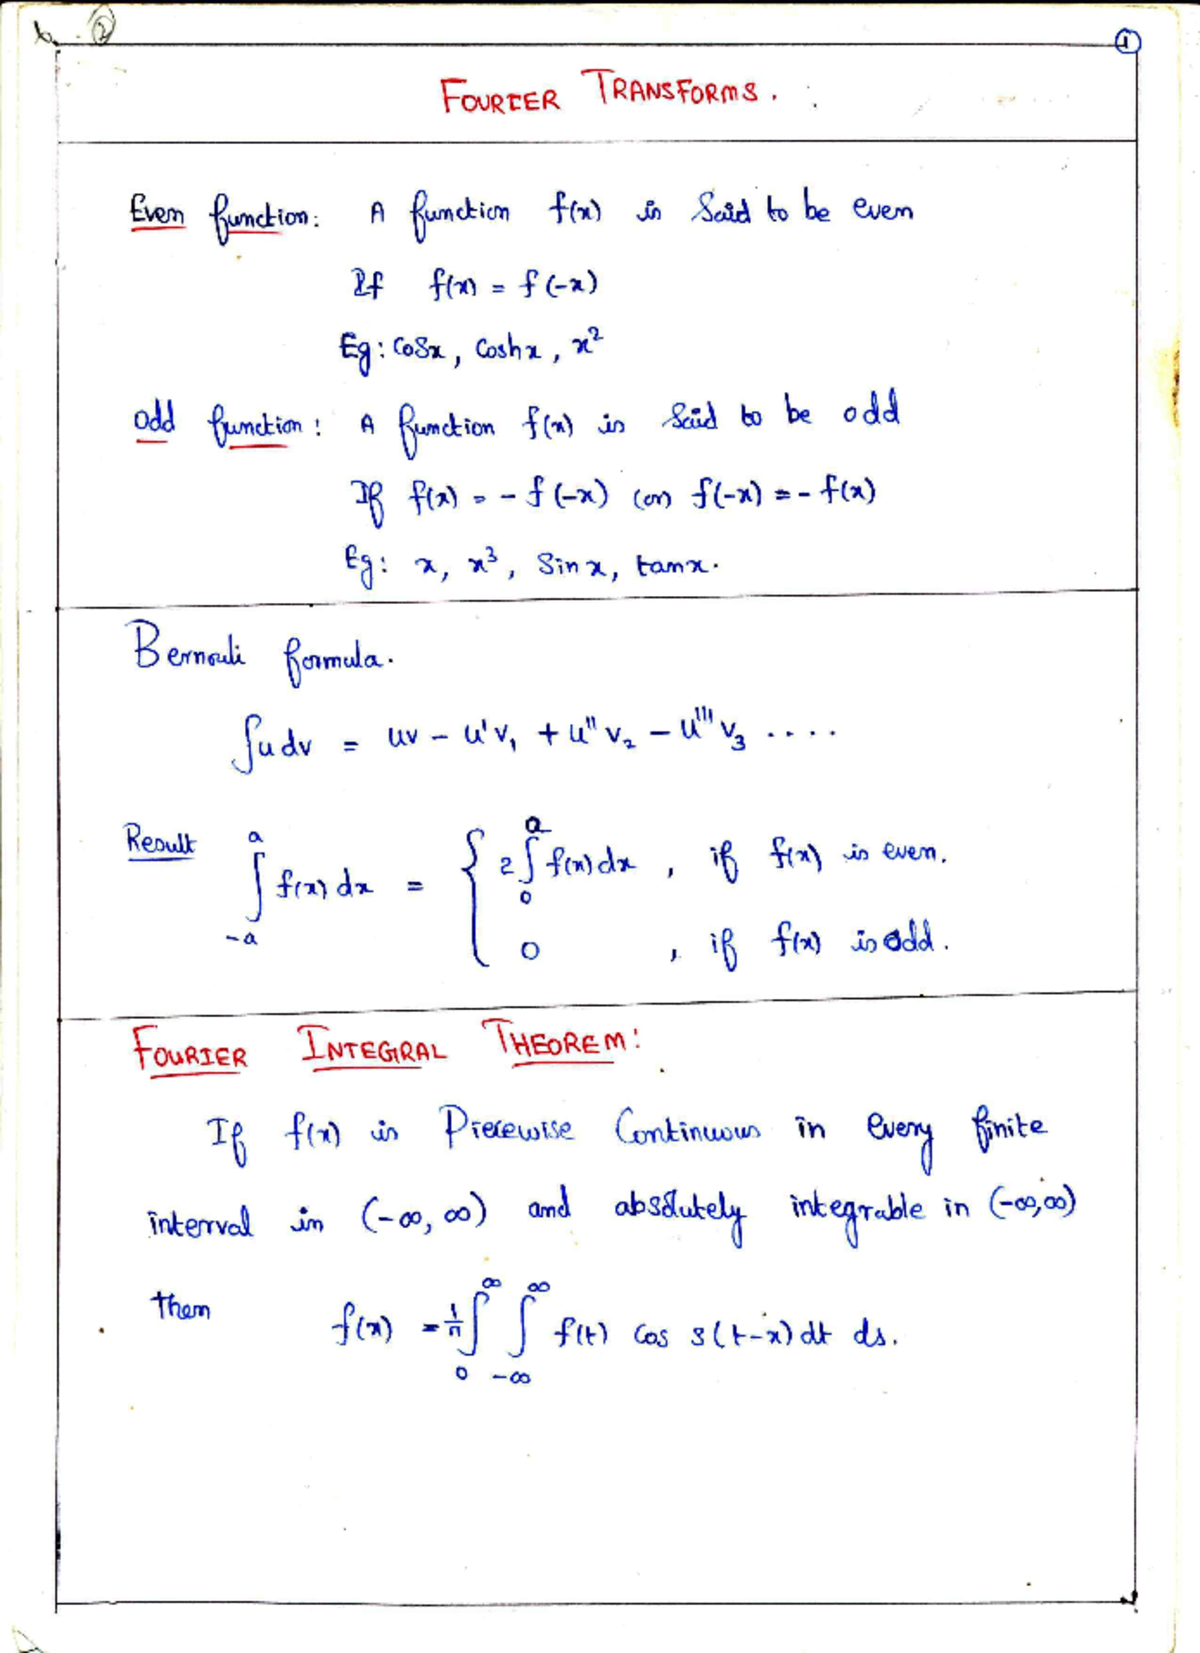 ②
①
FOURIER TRANSFORMS.
Even function: A function f(x) is Said to be even
If f(x) = f(-x)
Eg: cosx, coshx, x²
odd function: A function f(x) is Said to be odd
If f(x) = - f(-x) (or) f(-x) = - f(x)
Eg: x, x³, Sin x, tanx.
Bernouli formula.
∫u dv = uv - u'v₁ + u''v₂ - u'''v₃ ....
Result ∫_{-a}^{a} f(x) dx = { 2∫_{0}^{a} f(x) dx , if f(x) is even.
0 , if f(x) is odd.
FOURIER INTEGRAL THEOREM:
If f(x) is Piecewise Continuous in every finite
interval in (-∞, ∞) and absolutely integrable in (-∞,∞)
then f(x) = 1/π ∫_{0}^{∞} ∫_{-∞}^{∞} f(t) cos s(t-x) dt ds.